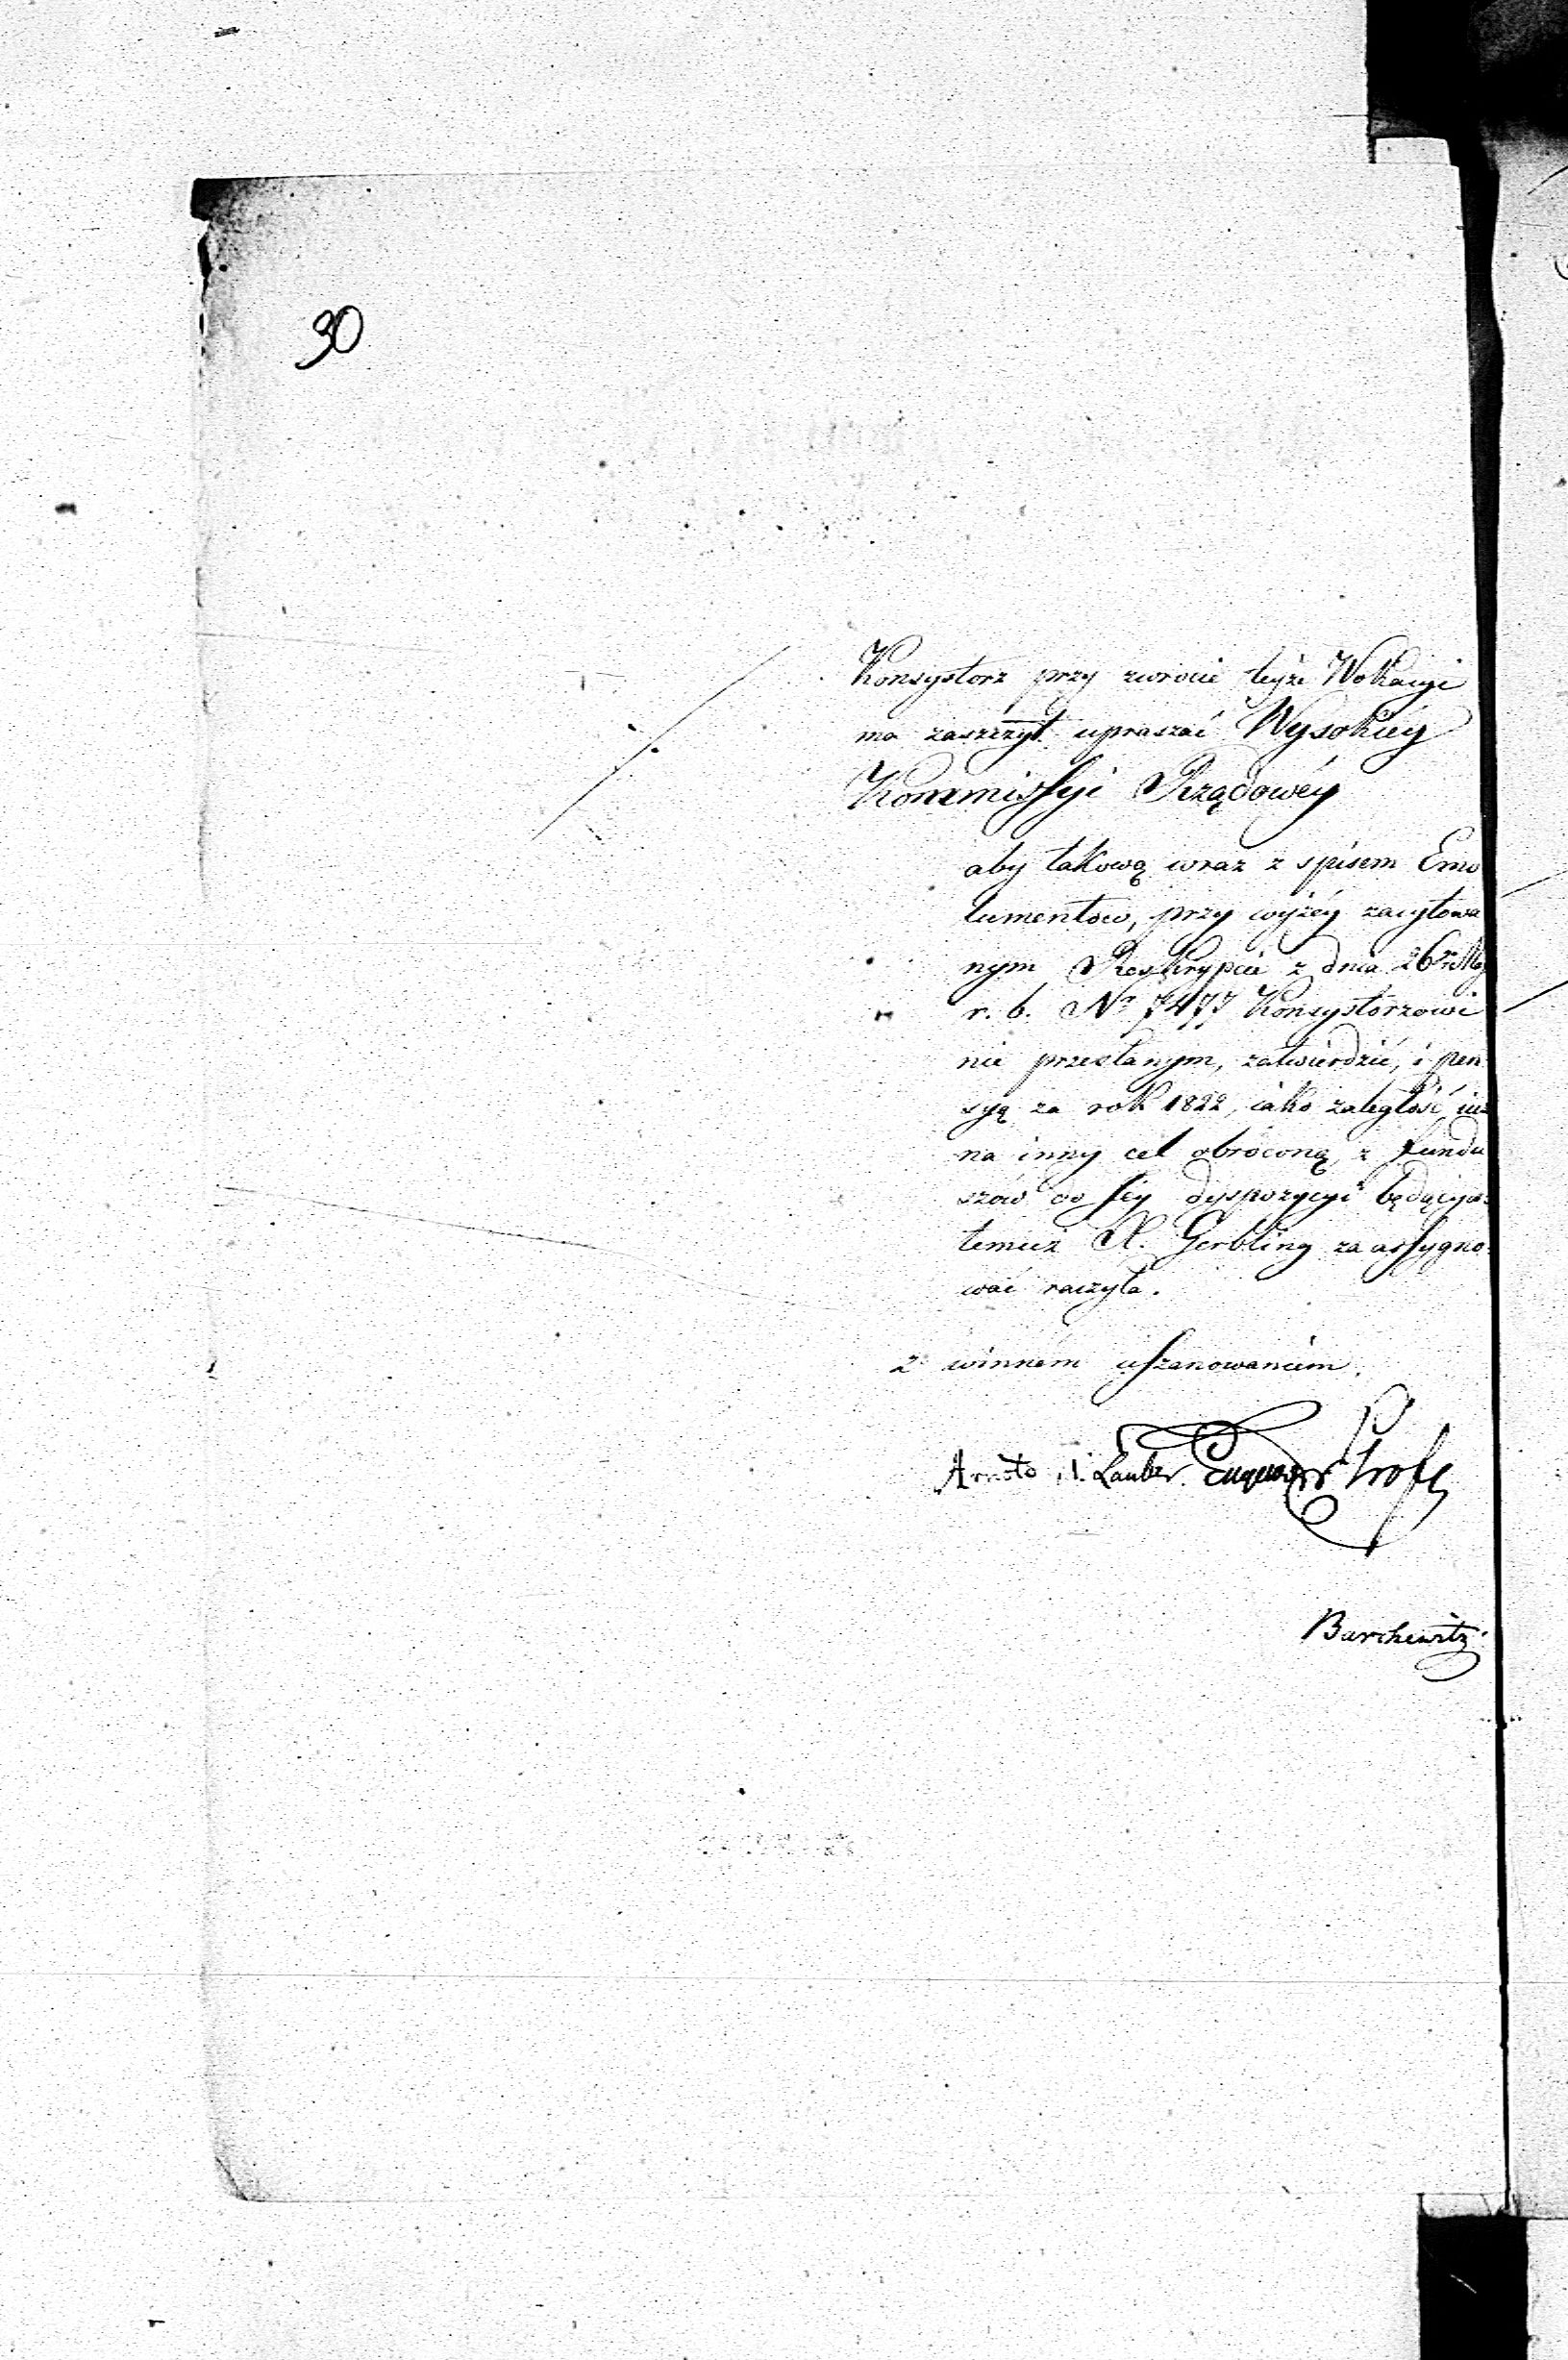 30
Konsystorz przy zwrocie teyże Wokacyi
ma zaszczyt upraszać Wysokiéy
Kommissyi Rządowéy
aby takową wraz z spisem Emo
lumentow, przy wyżéy zacytowa
nym Reskrypcie z dnia 26
r. b. No 7477 Konsystorzowi
nie przesłanym, zatwierdzić, i pen
syą za rok 1822, iako zaległość iuż
na inny cel obróconą, z fundu
szów do Jey dyspozycyi będących
temuż X. Gerbling zaassygno
wać raczyła.
z winném uszanowaniem.
Lauber.
Barchewitz